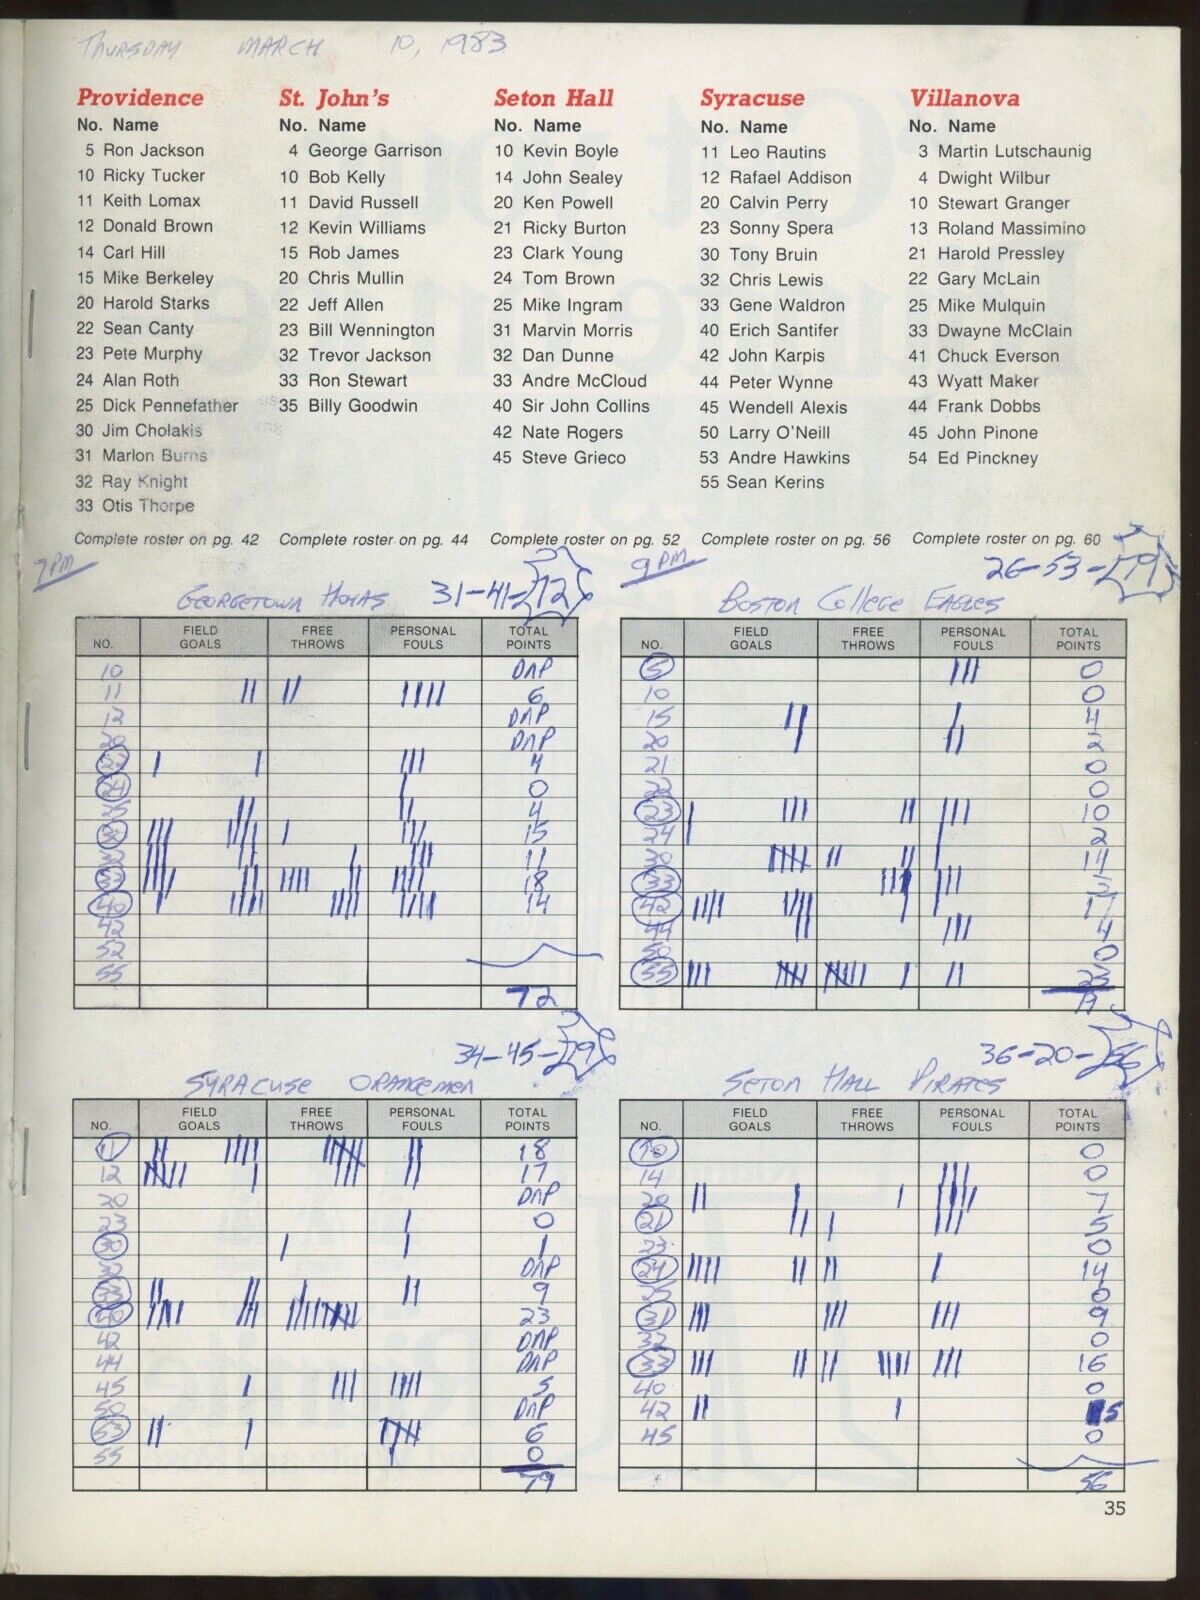 THURSDAY MARCH 10, 1983
Providence
No. Name
5 Ron Jackson
10 Ricky Tucker
11 Keith Lomax
12 Donald Brown
14 Carl Hill
15 Mike Berkeley
20 Harold Starks
22 Sean Canty
23 Pete Murphy
24 Alan Roth
25 Dick Pennefather
30 Jim Cholakis
31 Marlon Burns
32 Ray Knight
33 Otis Thorpe
Complete roster on pg. 42
St. John's
No. Name
4 George Garrison
10 Bob Kelly
11 David Russell
12 Kevin Williams
15 Rob James
20 Chris Mullin
22 Jeff Allen
23 Bill Wennington
32 Trevor Jackson
33 Ron Stewart
35 Billy Goodwin
Complete roster on pg. 44
Seton Hall
No. Name
10 Kevin Boyle
14 John Sealey
20 Ken Powell
21 Ricky Burton
23 Clark Young
24 Tom Brown
25 Mike Ingram
31 Marvin Morris
32 Dan Dunne
33 Andre McCloud
40 Sir John Collins
42 Nate Rogers
45 Steve Grieco
Complete roster on pg. 52
Syracuse
No. Name
11 Leo Rautins
12 Rafael Addison
20 Calvin Perry
23 Sonny Spera
30 Tony Bruin
32 Chris Lewis
33 Gene Waldron
40 Erich Santifer
42 John Karpis
44 Peter Wynne
45 Wendell Alexis
50 Larry O'Neill
53 Andre Hawkins
55 Sean Kerins
Complete roster on pg. 56
Villanova
No. Name
3 Martin Lutschaunig
4 Dwight Wilbur
10 Stewart Granger
13 Roland Massimino
21 Harold Pressley
22 Gary McLain
25 Mike Mulquin
33 Dwayne McClain
41 Chuck Everson
43 Wyatt Maker
44 Frank Dobbs
45 John Pinone
54 Ed Pinckney
Complete roster on pg. 60
7 PM
GEORGETOWN HOYAS 31-41-72
NO. FIELD GOALS FREE THROWS PERSONAL FOULS TOTAL POINTS
10 DNP
11 6
12 DNP
20 DNP
22 4
24 0
25 4
32 15
11
33 18
40 14
42
52
55
72
9 PM
BOSTON COLLEGE EAGLES 26-53-79
NO. FIELD GOALS FREE THROWS PERSONAL FOULS TOTAL POINTS
5 0
10 0
15 4
20 2
21 0
22 0
23 10
24 2
30 14
33 3
42 17
44 4
50 0
55 23
79
SYRACUSE ORANGEMEN 34-45-79
NO. FIELD GOALS FREE THROWS PERSONAL FOULS TOTAL POINTS
11 18
12 17
20 DNP
23 0
30 1
32 DNP
33 9
40 23
42 DNP
44 DNP
45 5
50 DNP
53 6
55 0
79
SETON HALL PIRATES 36-20-56
NO. FIELD GOALS FREE THROWS PERSONAL FOULS TOTAL POINTS
10 0
14 0
20 7
21 5
23 0
24 14
25 0
31 9
32 0
33 16
40 0
42 5
45 0
56
35